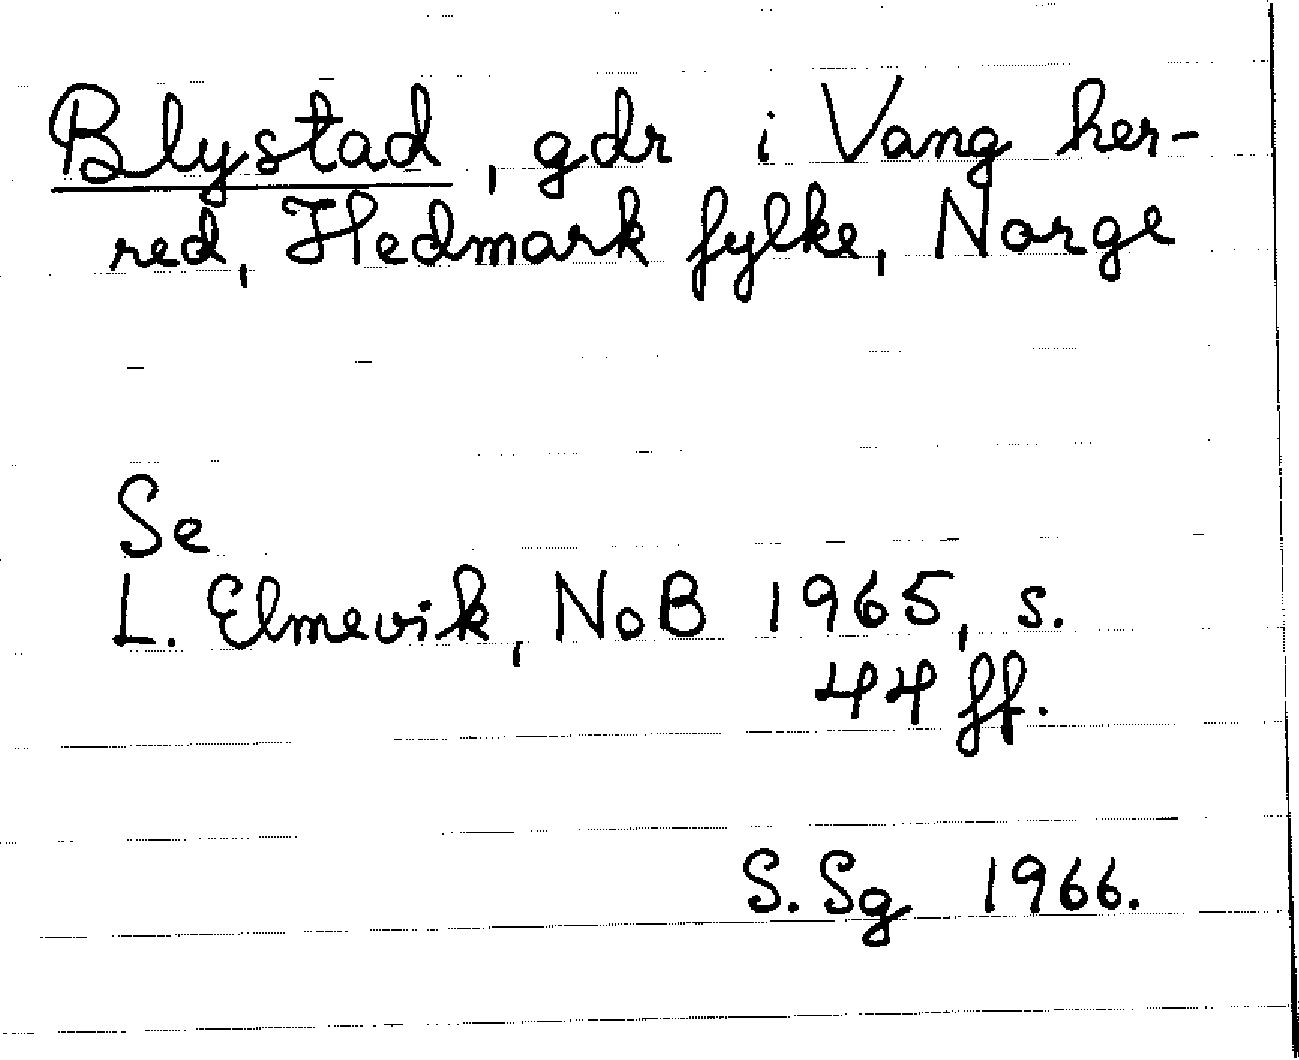 Blystad, gdr i Vang her-
red, Hedmark fylke, Norge
Se
L. Elmevik, NoB 1965, s.
44 ff.
S. Sg 1966.